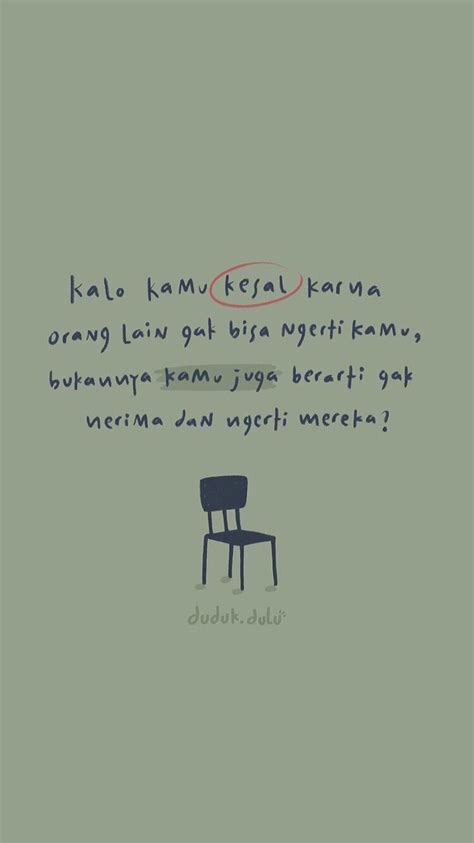 kalo kamu kesal karna
orang lain gak bisa ngerti kamu,
bukannya kamu juga berarti gak
nerima dan ngerti mereka?
duduk.dulu